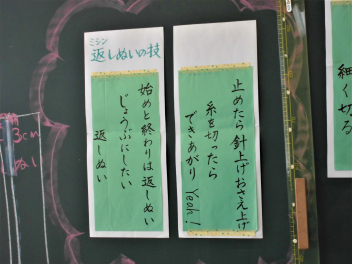 ミシン
返しぬいの技
始めと終わりは返しぬい
じょうぶにしたい
返しぬい
止めたら針上げおさえ上げ
糸を切ったら
できあがり Yeah!
細く切る
3cm
ぬい